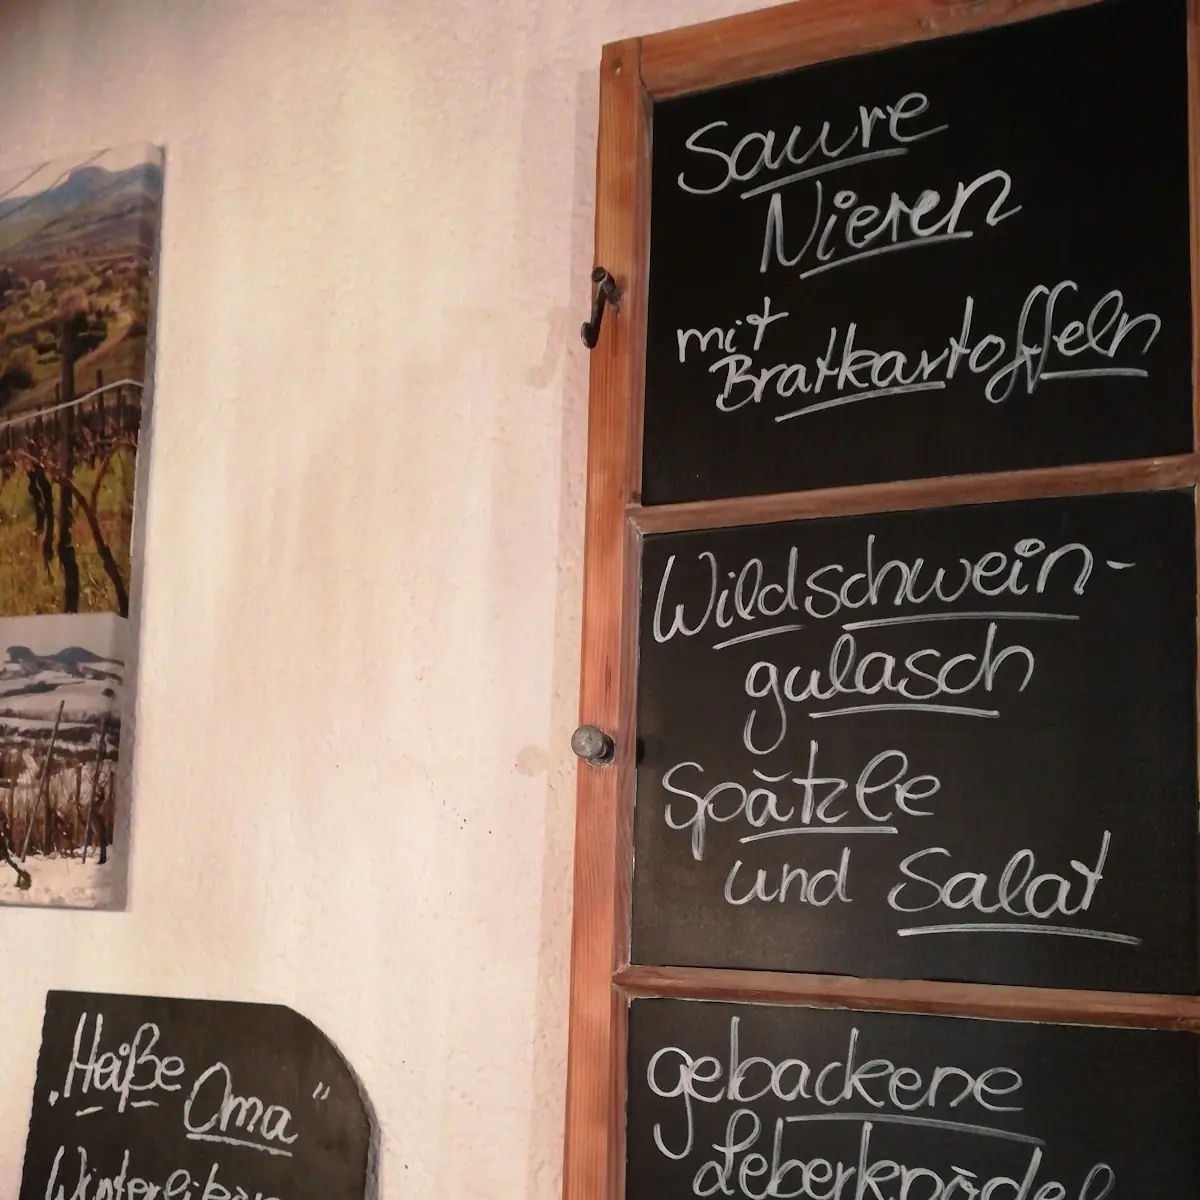 Saure
Nieren
mit
Bratkartoffeln
Wildschwein-
gulasch
Spätzle
und Salat
gebackene
Leberknödel
„Heiße
Oma"
Winterlikör